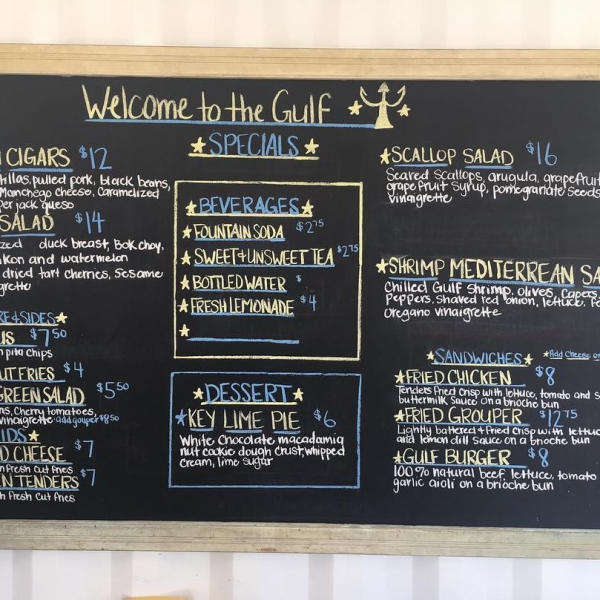 Welcome to the Gulf
SPECIALS
CIGARS $12
tillas, pulled pork, black beans,
Manchego cheese, caramelized
per jack queso
SALAD $14
zed duck breast, Bok choy,
kon and watermelon
dried tart cherries, sesame
grette
RE+SIDES
US $7.50
pita chips
UT FRIES $4
GREEN SALAD $5.50
ns, cherry tomatoes,
vinaigrette add grouper $8.50
IDS
D CHEESE $7
fresh cut fries
EN TENDERS $7
fresh cut fries
BEVERAGES
FOUNTAIN SODA $2.75
SWEET+UNSWEET TEA $2.75
BOTTLED WATER $
FRESH LEMONADE $4
DESSERT
KEY LIME PIE $6
White chocolate macadamia
nut cookie dough crust, whipped
cream, lime sugar
SCALLOP SALAD $16
Seared scallops, arugula, grapefruit
grapefruit syrup, pomegranate seeds
vinaigrette
SHRIMP MEDITERREAN SA
Chilled Gulf shrimp, olives, capers,
Peppers, shaved red onion, lettuce, Fe
Oregano vinaigrette
SANDWICHES
Add Cheese or
FRIED CHICKEN $8
Tenders fried crisp with lettuce, tomato and s
buttermilk sauce on a brioche bun
FRIED GROUPER $12.75
Lightly battered + fried crisp with lettuc
and lemon dill sauce on a brioche bun
GULF BURGER $8
100% natural beef, lettuce, tomato
garlic aioli on a brioche bun